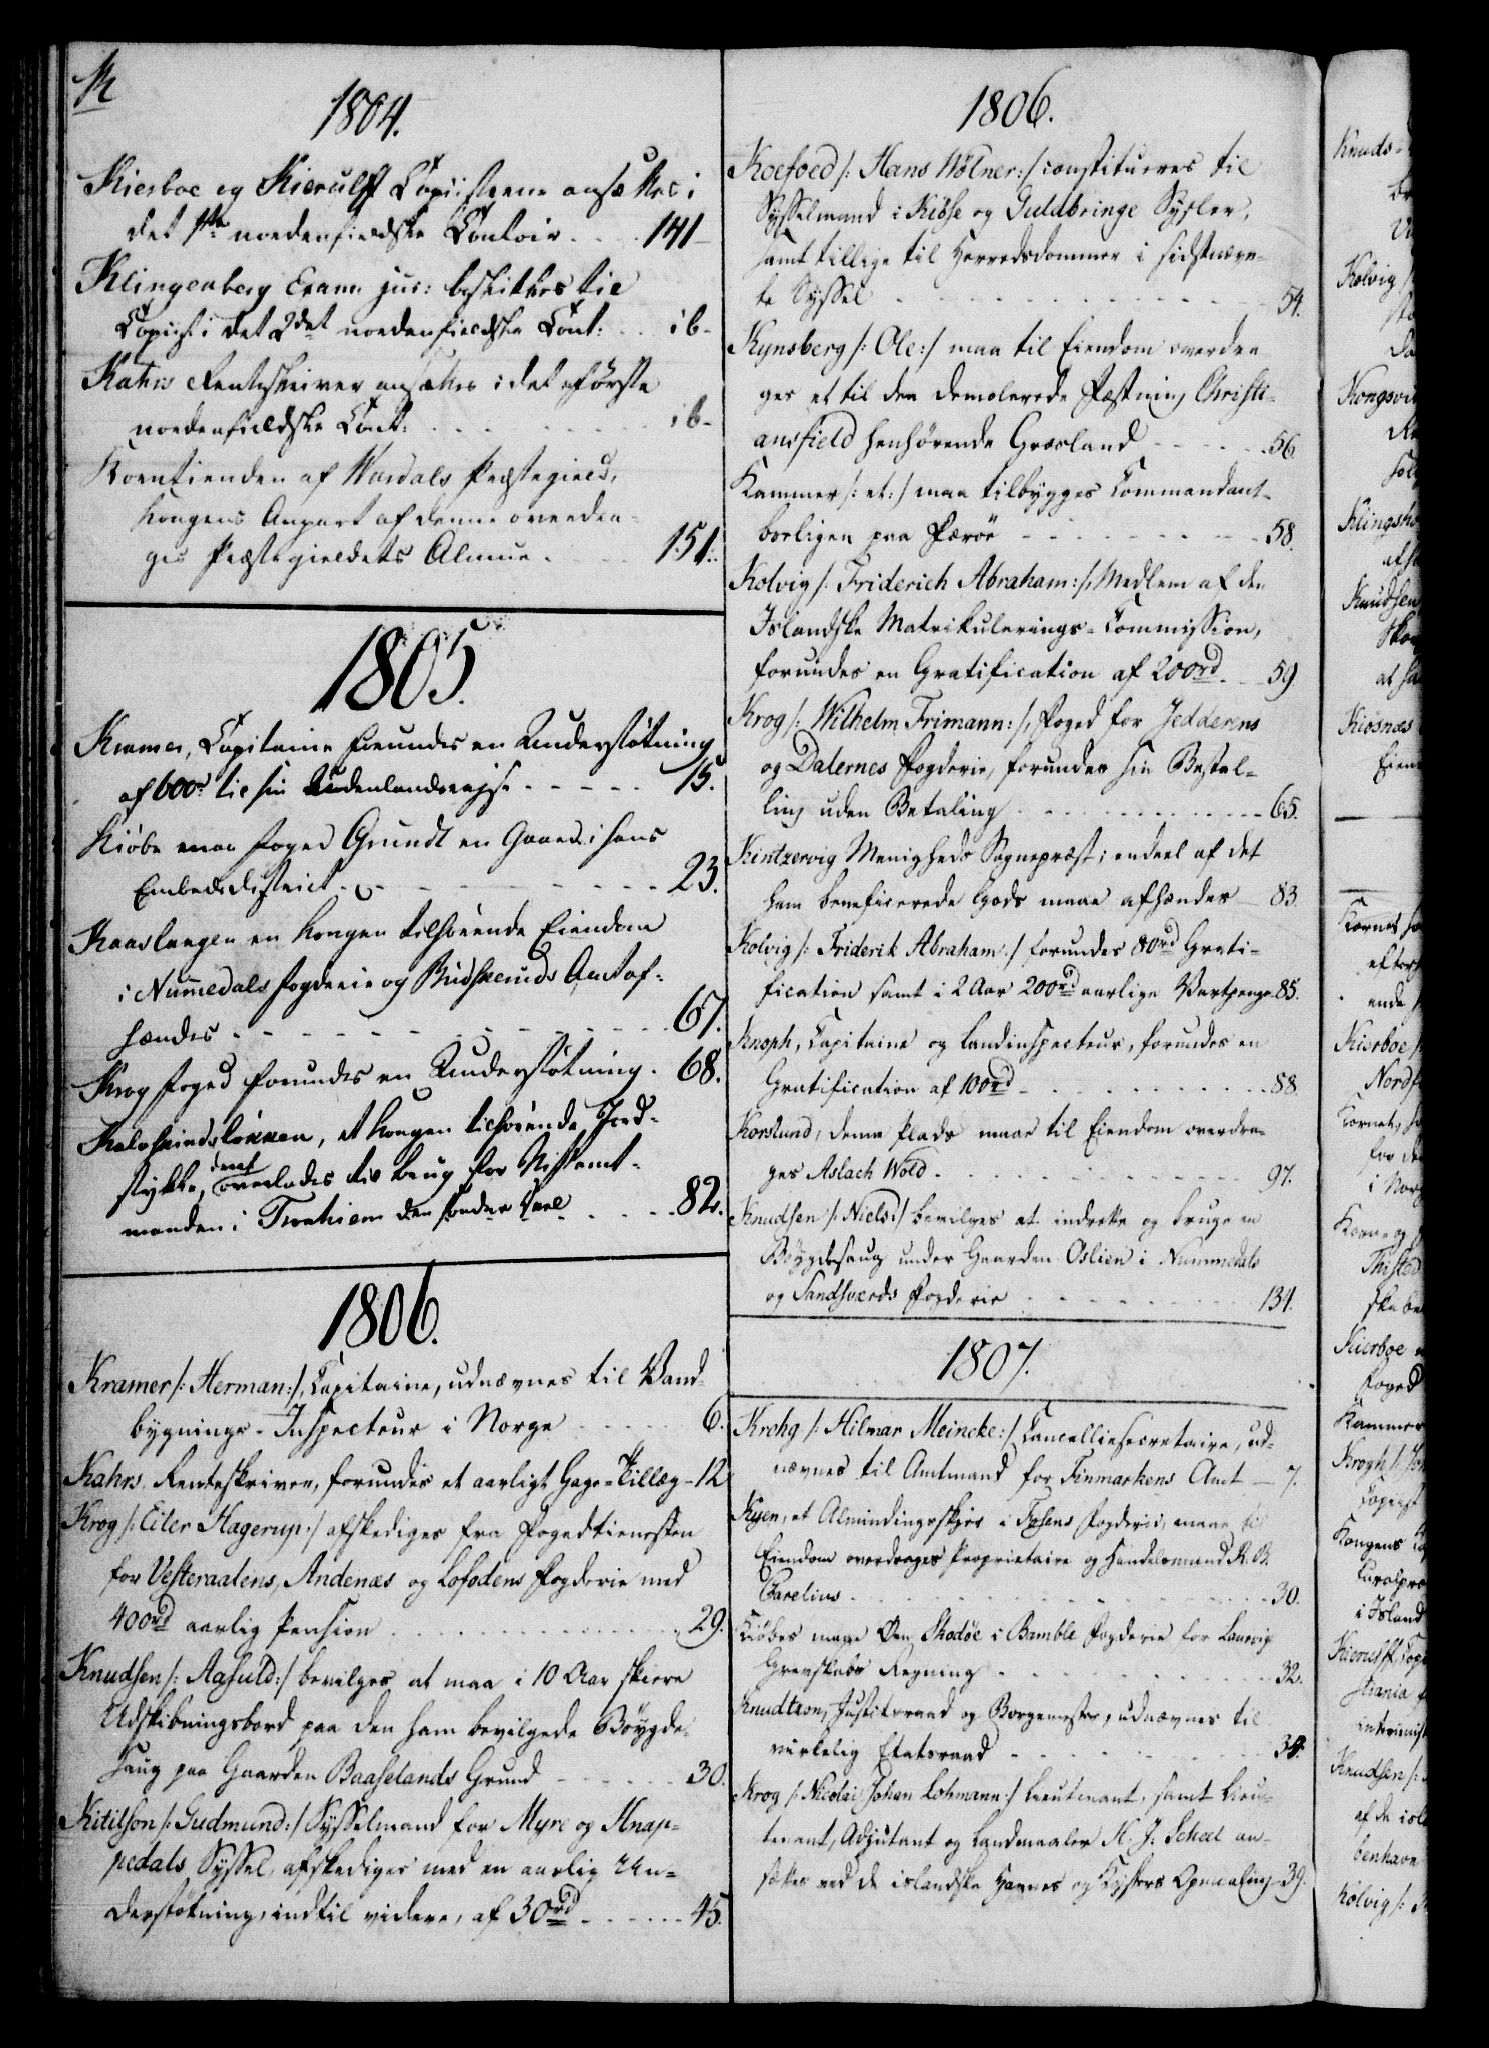 K
1804.
Kierboe og Kierulff Copiisterne ansættes i
det 1ste nordenfieldske Contoir 141
Klingenberg Exam jur: beskikkes til
Copiist i det 2det nordenfieldske Cont: ib-
Kahrs Renteskriver ansættes i det første
nordenfieldske Cont: ib-
Korntienden af Wardals Præstegield,
Kongens Anpart af denne overdra-
ges Præstegieldets Almue 151.
1805.
Kramer, Capitaine forundes en Understøtning
af 600rd til sin Udenlandsreise 15.
Kiøbe maa Foged Grundt en Gaard i hans
Embedsdistrict 23.
en Kongen tilhørende Eiendom
i Nummedals Fogderie og Budskeruds Amt af-
hændes 67.
Krog Foged forundes en Understøtning 68.
et Kongen tilhørende Jord-
stykke, overlades til brug for Stiftamt-
manden i Tronhiem 82.
1806.
Kramer /: Herman:/, Capitaine, udnævnes til Vand-
bygnings-Inspecteur i Norge 6.
Kahrs, Renteskriver, forundes et aarligt Gage-Tillæg 12
Krog /: Eiler Hagerup:/ afskediges fra Fogedtienesten
for Vesteraalens, Andenæs og Lofodens Fogderie med
400rd aarlig Pension 29.
Knudsen /: Aasuld:/ bevilges at maa i 10 Aar skiere
Udskibningsbord paa den ham bevilgede Böygde-
Saug paa Gaarden Baaselands Grund 30.
Kitilson /: Gudmund:/ Sysselmand for Myre og Hnap-
pedals Syssel, afskediges med en aarlig Un-
derstøtning, indtil videre, af 30rd 45.
1806.
Koefoed /: Hans Wölner:/ constitueres til
Sysselmand i Kiöse og Guldbringe Sysler,
samt tillige til Herredsdommer i sidstnævn-
te Syssel 54.
Kynsberg /: Ole:/ maa til Eiendom overdra-
ges et til den demolerede Fæstning Christi-
ansfield henhørende Græsland 56.
Kammer /: et:/ maa tilbygges Commandant-
boeligen paa Færöe 58.
Kolvig /: Friderich Abraham:/, Medlem af den
Islandske Matrikulerings-Commission,
forundes en Gratification af 200rd 59.
Krog /: Wilhelm Frimann:/, Foged for Jedderens
og Dalernes Fogderie, forundes sin Bestal-
ling uden Betaling 65.
Kintzervig Menigheds Sognepræst; endeel af det
ham beneficerede Gods maae afhændes 83.
Kolvig /: Friderik Abraham:/ forundes 80rd Grati-
fication samt i 2 Aar 200rd aarlige Vartpenge 85.
Knoph, Capitaine og Landinspecteur, forundes en
Gratification af 100rd 88.
Korslund, denne Plads maae til Eiendom overdra-
ges Aslach Wold 97.
Knudsen /: Niels:/ bevilges at indrette og bruge en
Böygdesaug under Gaarden Oslien i Nummedals
og Sandsværds Fogderie 134.
1807.
Krohg /: Hilmar Meincke:/ Cancelliesecretaire, ud-
nævnes til Amtmand for Finmarkens Amt 7.
Kyen, et Almindingsskjær i Fosens Fogderie, maae til
Eiendom overdrages Proprietaire og Handelsmand R. B.
Parelius 30.
Kiøbes maae Øen Skodöe i Bamble Fogderie for Laurvigs
Grevskabs Regning 32.
Knudtzon, Justitsraad og Borgemester, udnævnes til
virkelig Etatsraad 34.
Krog /: Nicolai Johan Lohmann:/ Lieutenant, samt Lieu-
tenant, Adjutant og Landmaaler H. J. Scheel an-
sættes ved de islandske Havnes og Kysters Opmaaling 39.
Knuds-
Kolvig
Kongsvi
Klingsho
Knudsen
at
Kiosnæs
Eien
Kornet
efter
ende
Kierboe
Nordf
Kornet,
for de
i Norg
Korn-og
Thisted
skabe
Kierboe
Foged
Kammer
Krogh
Copiist
Kongens
i Island
Kierulff, Cop
stiania
interimist
Knudsen /:
af de isl
benhavn
Kolvig /: